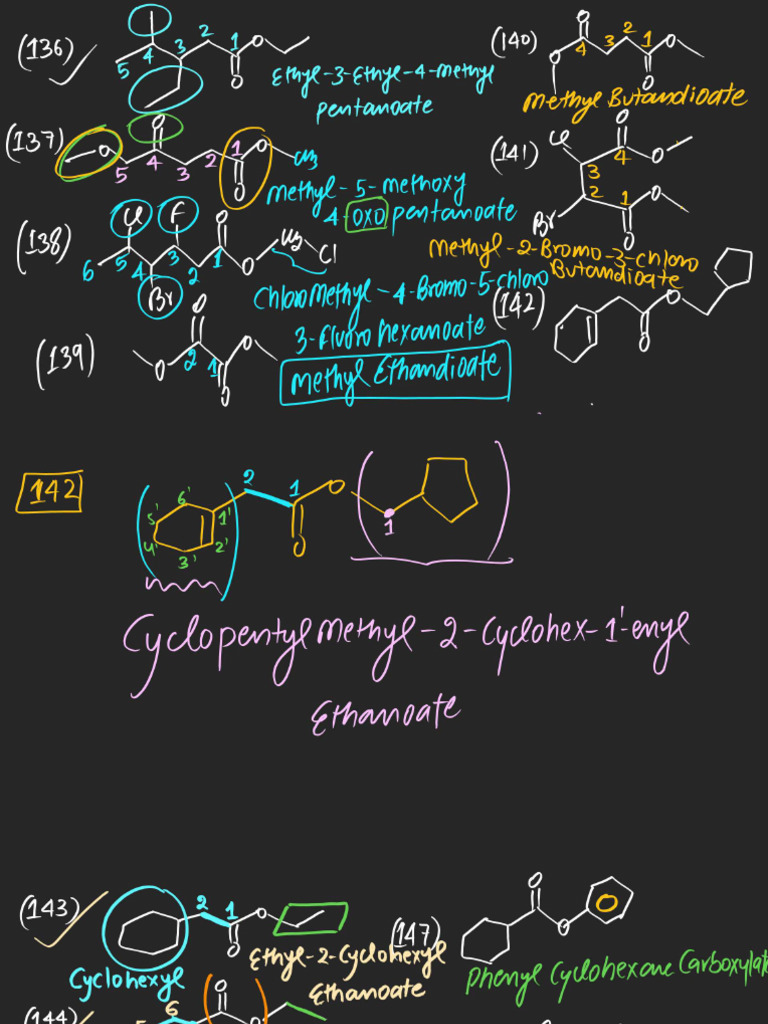 (136)
5 4 3 2 1 O O
Ethyl-3-Ethyl-4-Methyl
pentanoate
(140)
O O 4 3 2 1 O O
Methyl Butandioate
(137)
O O 5 4 3 2 1 O O CH3
Methyl-5-methoxy
4-oxo pentanoate
(141)
Cl O 4 O 3 2 1 O O Br
Methyl-2-Bromo-3-chloro
Butandioate
(138)
Cl F O 6 5 4 3 2 1 O Br CH2 Cl
ChloroMethyl-4-Bromo-5-chloro
3-fluoro hexanoate
(142)
O O
(139)
O O 2 1 O O
Methyl Ethandioate
142
6' 5' 4' 3' 2' 1' 2 1 O O 1
Cyclopentyl Methyl-2-Cyclohex-1'-enyl
Ethanoate
(143)
2 1 O O
Cyclohexyl
Ethyl-2-Cyclohexyl
Ethanoate
(147)
O O
Phenyl Cyclohexane Carboxylat
(144)
6 O O
5